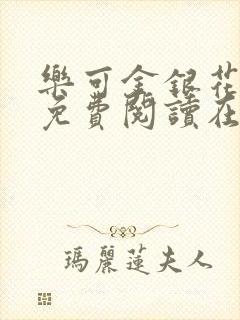 樂可金銀花
免費閱讀在
瑪麗蓮夫人